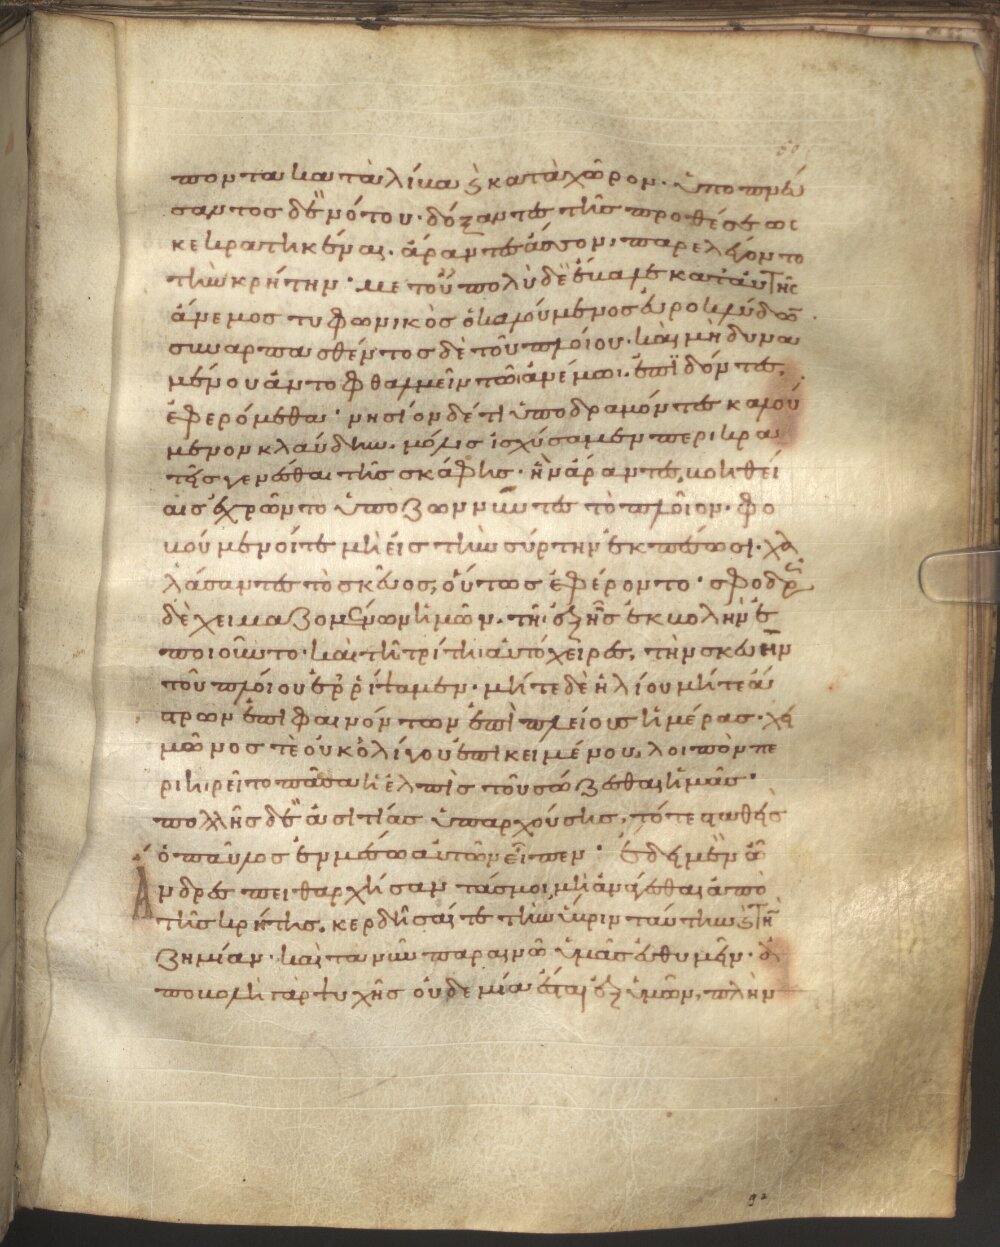 50
ποντα κατὰ λίβα ϗ κατὰ χῶρον· ὑποπνεύ
σαντος δὲ νότου· δόξαντες τῆς προθέσεως
κεκρατηκέναι· ἄραντες ἄσσον, παρελέγοντο
τὴν κρήτην· μετ οὐ πολὺ δὲ ἔβαλε κατ αὐτῆς
ἄνεμος τυφωνικὸς ὁ καλούμενος εὐροκλύδων·
συναρπασθέντος δὲ τοῦ πλοίου· καὶ μὴ δυνα
μένου ἀντοφθαλμεῖν τῶ ἀνέμωι· ἐπιδόντες,
ἐφερόμεθα· νησίον δέ τι ὑποδραμόντες καλού
μενον κλαύδην· μόλις ἰσχύσαμεν περικρα
τεῖς γενέσθαι τῆς σκάφης· ἣν ἄραντες, βοηθεί
αις ἐχρῶντο ὑποζωννῦντες τὸ πλοῖον· φο
βούμενοί τε μὴ εἰς τὴν σύρτην ἐκπέσωσι· χα
λάσαντες τὸ σκεῦος, οὕτως ἐφέροντο· σφοδρῶς
δὲ χειμαζομένων ἡμῶν· τῆ ἑξῆς ἐκβολὴν ἐ
ποιοῦντο· καὶ τῆ τρίτη αὐτόχειρες, τὴν σκευὴν
τοῦ πλοίου ἐρρίψαμεν· μήτε δὲ ἡλίου μήτε ἄ
στρων ἐπιφαινόντων ἐπὶ πλείους ἡμέρας· χει
μῶνος τὲ οὐκ ὀλίγου ἐπικειμένου, λοιπὸν πε
ριηρεῖτο πᾶσα ἡ ἐλπὶς τοῦ σώζεσθαι ἡμᾶς·
πολλῆς δὲ ἀσιτίας ὑπαρχούσης, τότε σταθεὶς
ὁ παῦλος ἐν μέσω αὐτῶν εἶπεν· ἔδει μὲν ὦ
Ανδρες πειθαρχήσαντάς μοι, μὴ ἀνάγεσθαι ἀπὸ
τῆς κρήτης, κερδῆσαί τε τὴν ὕβριν ταύτην ϗ τὴν
ζημίαν· καὶ τανῦν παραινῶ ὑμᾶς εὐθυμεῖν· ἀ
ποβολὴ γὰρ ψυχῆς οὐδεμία ἔσται ἐξ ὑμῶν, πλὴν
92